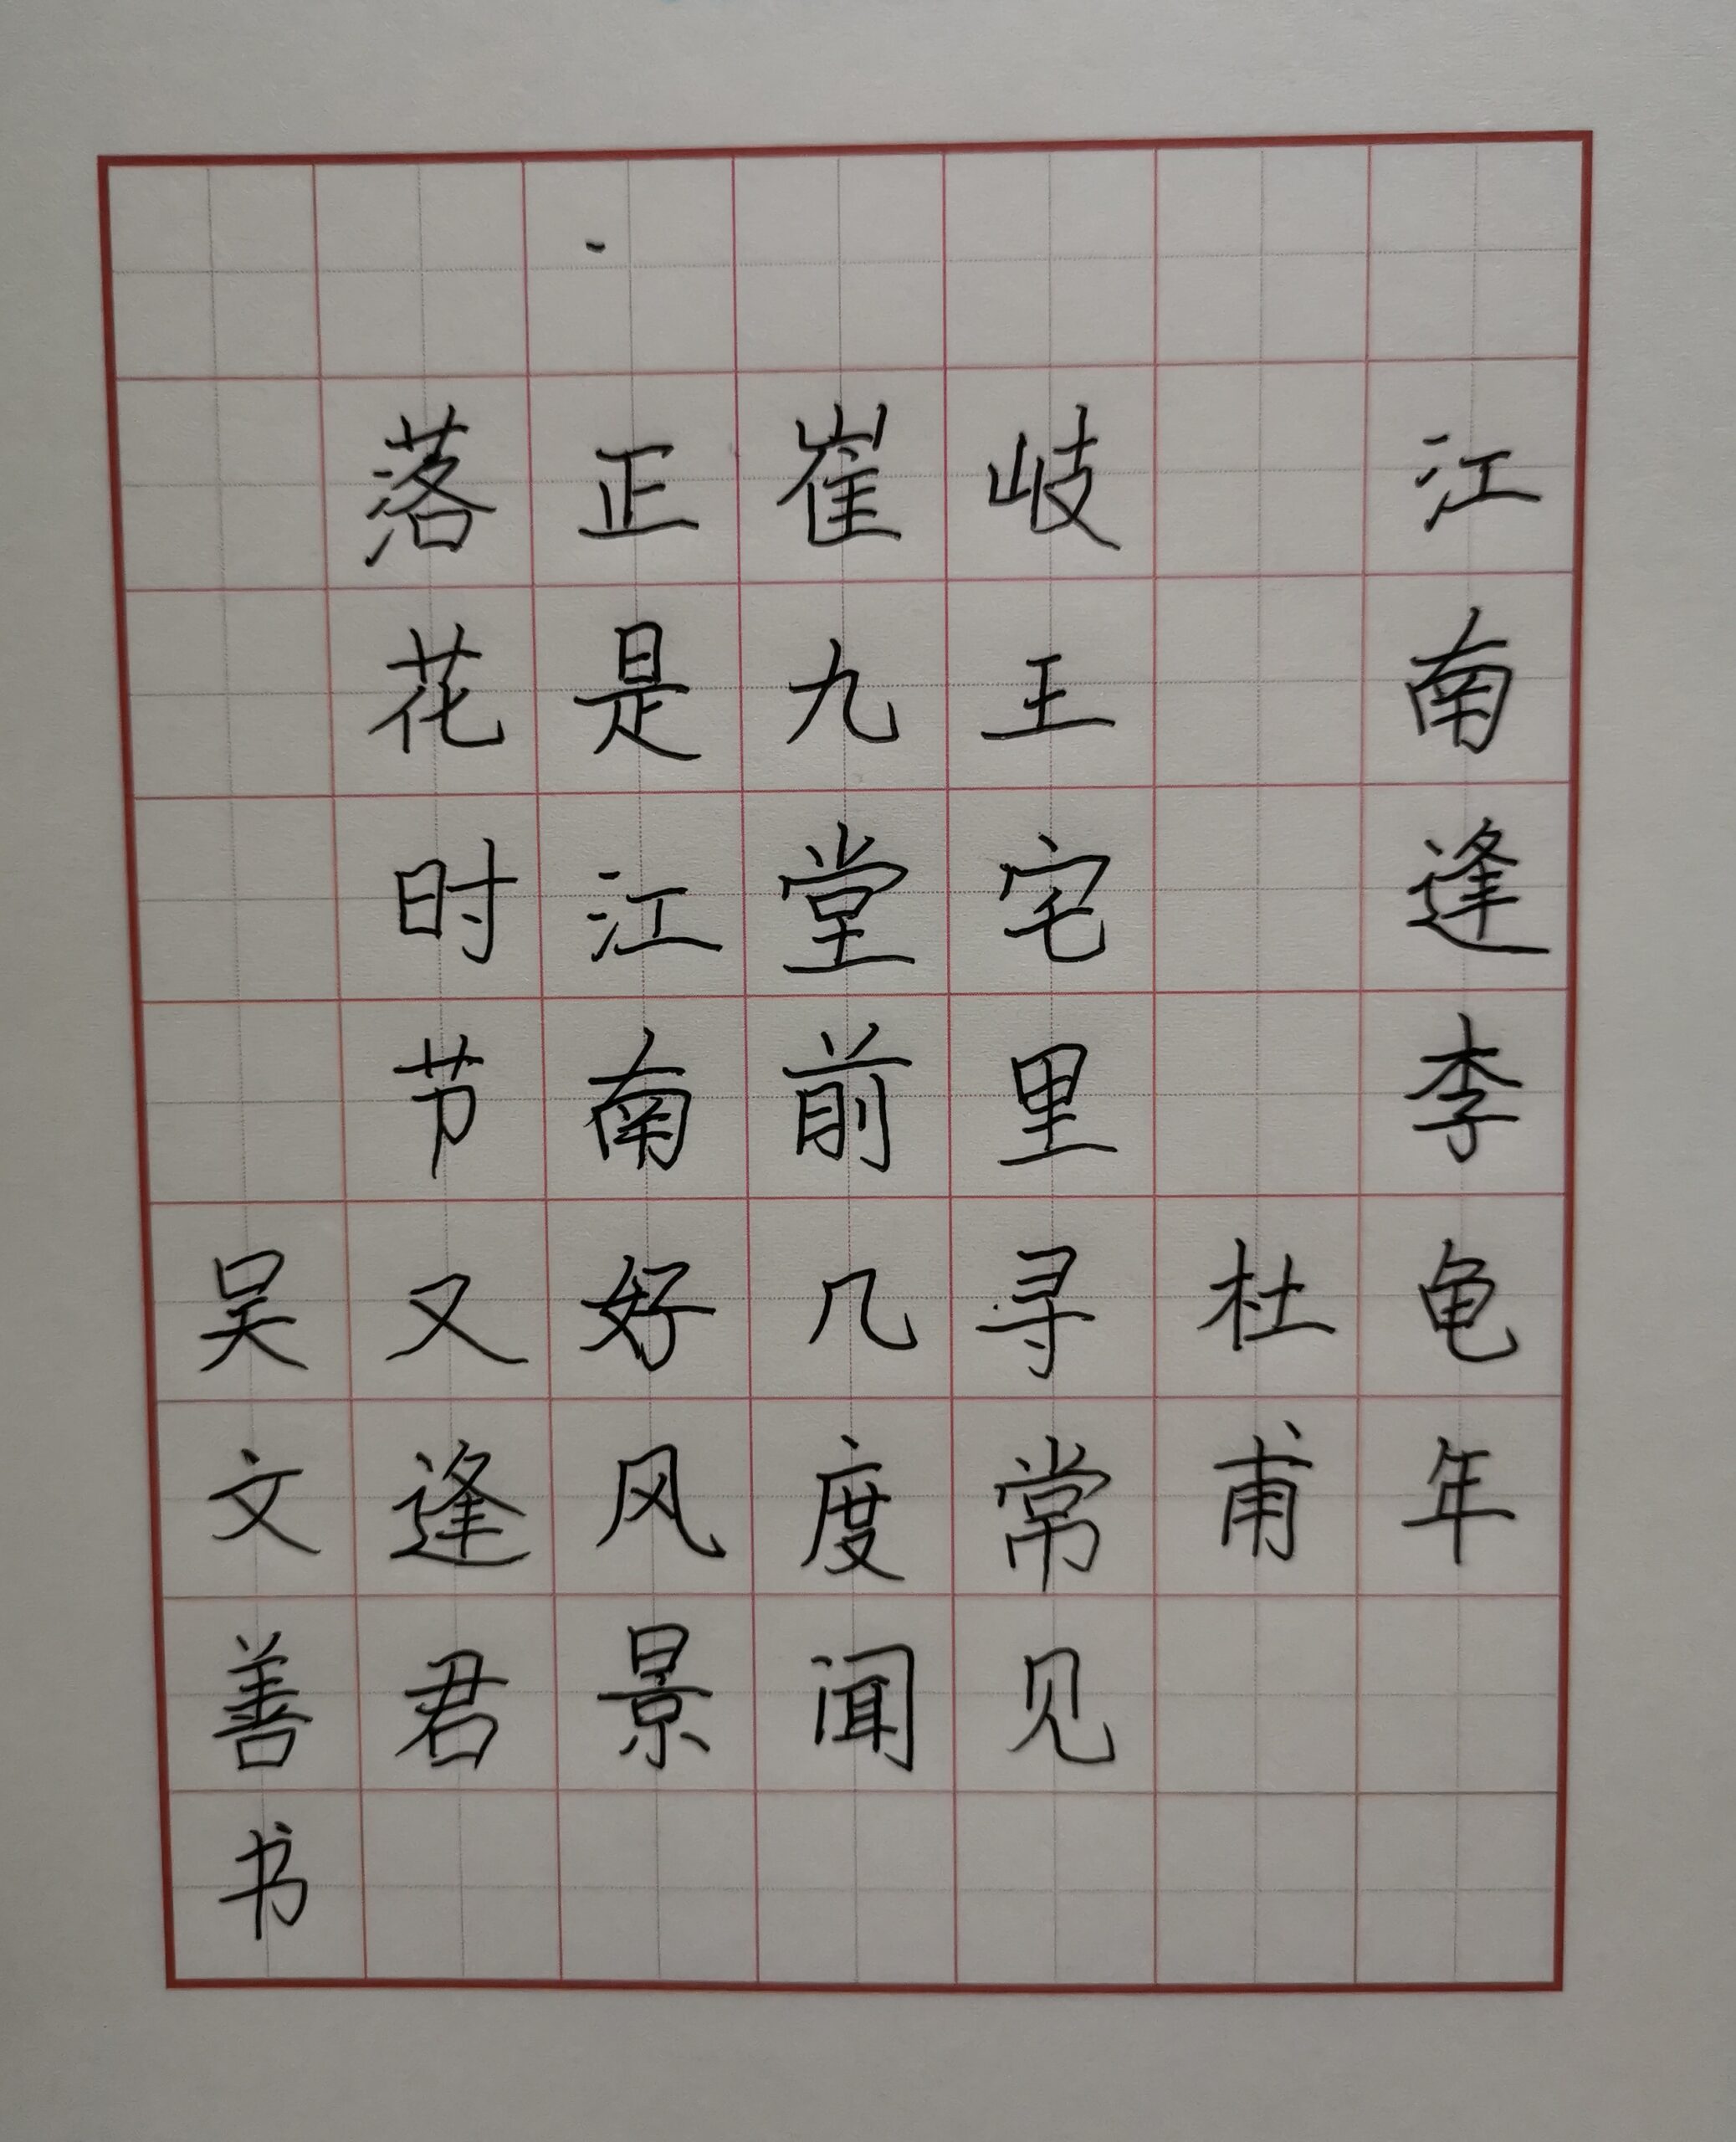 江南逢李龟年
杜甫
岐王宅里寻常见
崔九堂前几度闻
正是江南好风景
落花时节又逢君
吴文善书